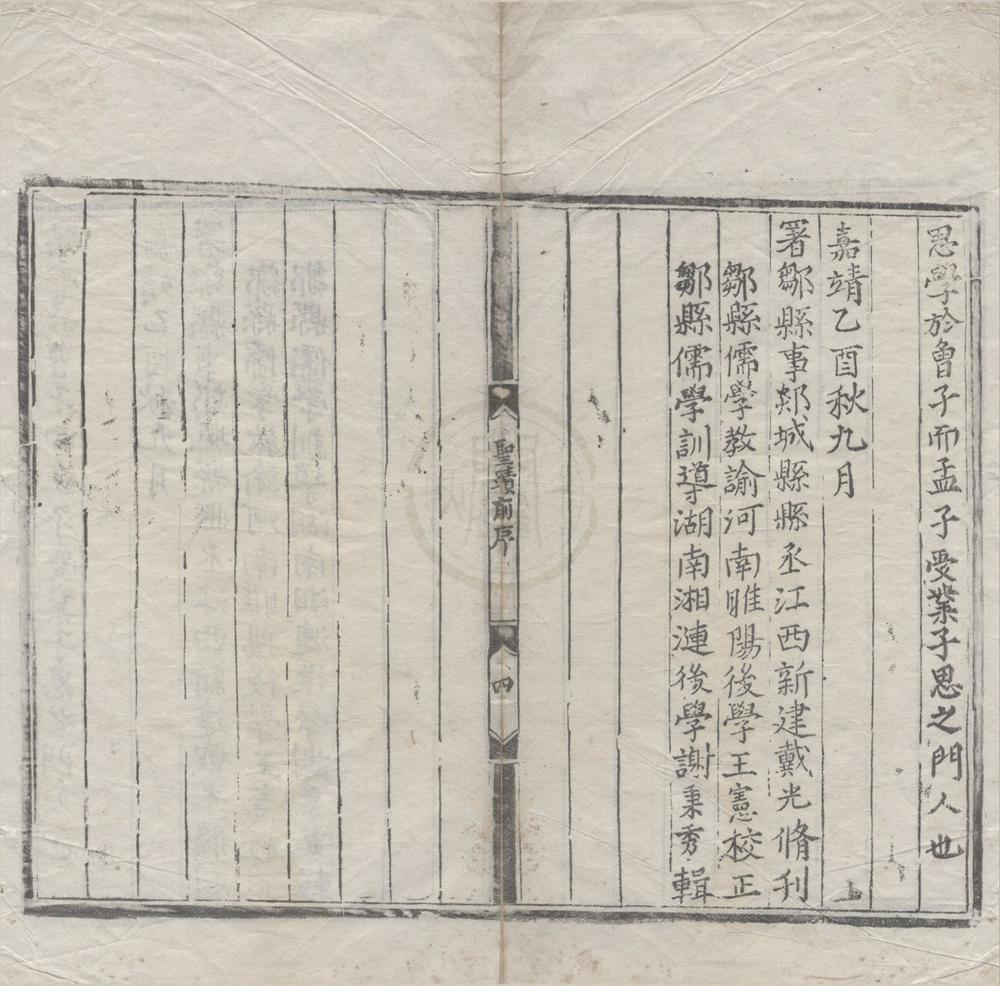 思學於曾子而孟子受業子思之門人也
嘉靖乙酉秋九月
署鄒縣事郯城縣縣丞江西新建戴光脩刊
鄒縣儒學教諭河南睢陽後學王憲校正
鄒縣儒學訓導湖南湘漣後學謝秉秀輯
聖蹟前序
四